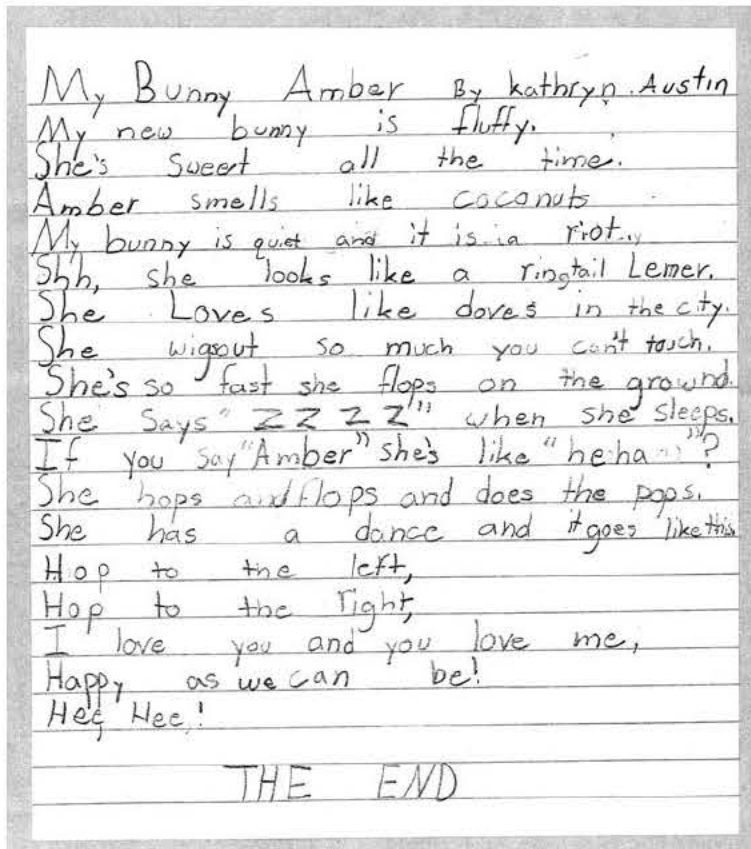 My Bunny Amber By kathryn Austin
My new bunny is fluffy.
She's sweet all the time.
Amber smells like coconuts
My bunny is quiet and it is a riot.
Shh, she looks like a ringtail Lemer.
She Loves like doves in the city.
She wigsout so much you can't touch.
She's so fast she flops on the ground.
She Says "ZZZZ" when she sleeps.
If you say "Amber" she's like "heha"?
She hops and flops and does the pops.
She has a dance and it goes like this
Hop to the left,
Hop to the right,
I love you and you love me,
Happy as we can be!
Hee, Hee!
THE END